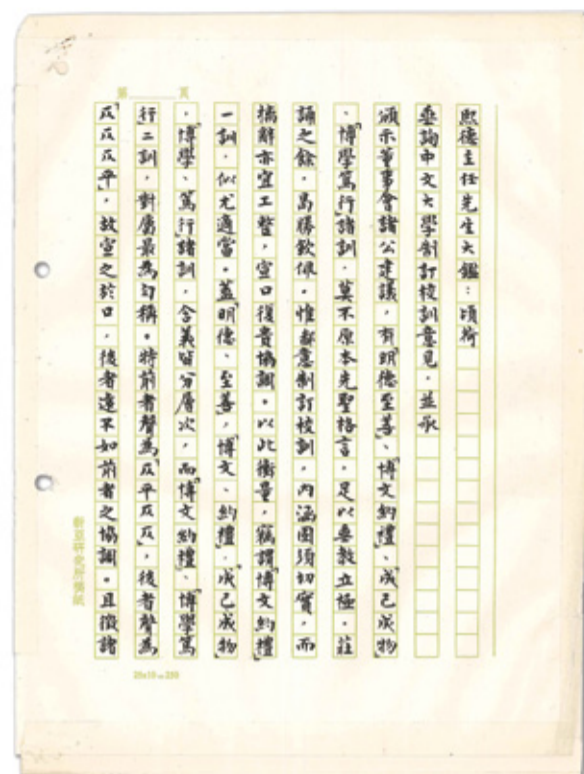 第 頁
熙德主任先生大鑑：頃荷
垂詢中文大學制訂校訓意見，並承
頒示董事會諸公建議，有「明德至善」、「博文約禮」、「成己成物」
、「博學篤行」諸訓，莫不原本先聖格言，足以垂教立極。莊
誦之餘，曷勝欽佩。惟鄙意制訂校訓，內涵固須切實，而
摛辭亦宜工整，宣口復貴協調。以此衡量，竊謂「博文約禮」
一訓，似尤適當。蓋「明德、至善」，「博文、約禮」，「成己成物」
，「博學、篤行」諸訓，含義皆分層次，而「博文約禮」、「博學篤
行」二訓，對屬最為勻稱。特前者聲為「仄平仄仄」，後者聲為
「仄仄仄平」，故宣之於口，後者遠不如前者之協調。且徵諸
新亞研究所稿紙
25x10=250